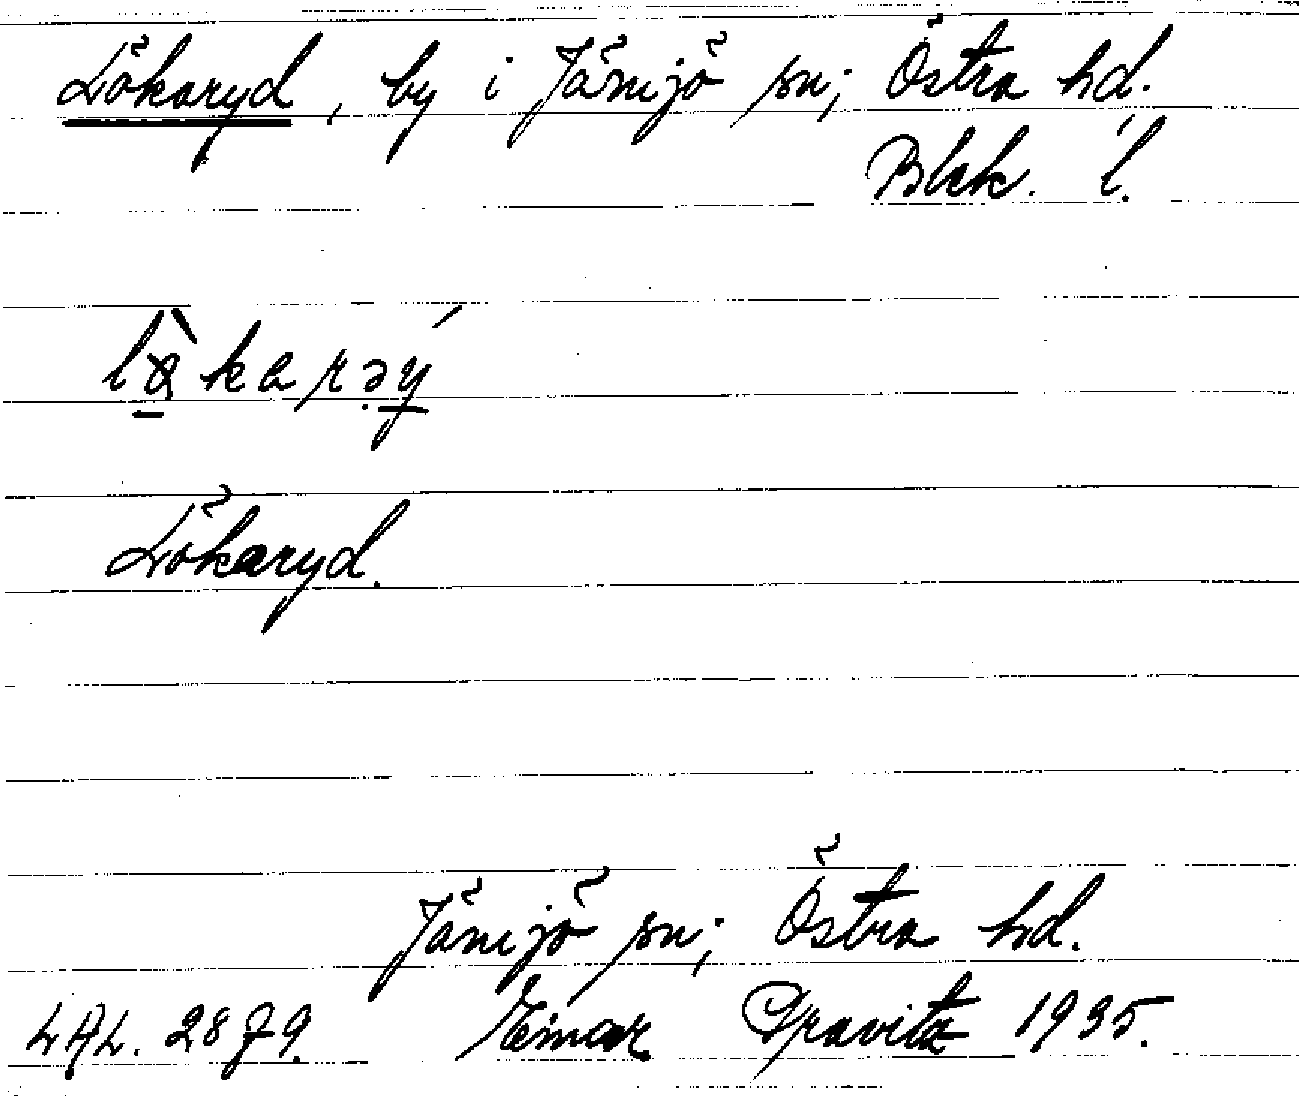 Lökaryd, by i Jämjö sn; Östra hd.
Blek. l.
lø̀karəý
Lökaryd.
Jämjö sn; Östra hd.
LAL. 2879. Einar Gravita 1935.